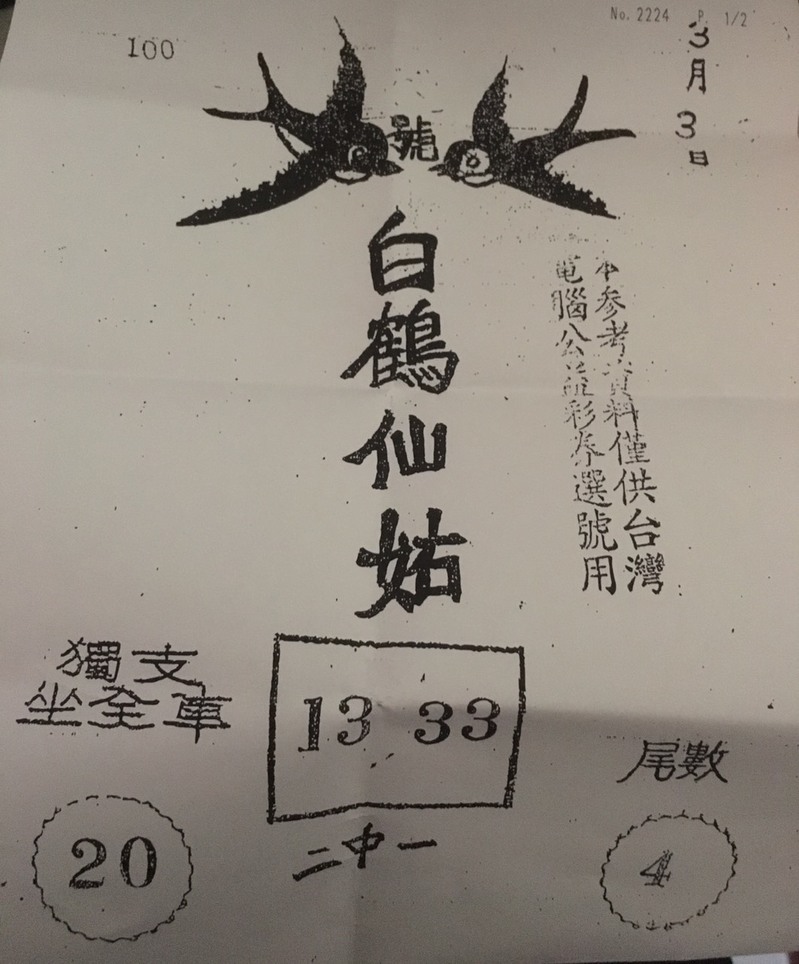 No. 2224 P. 1/2
100
號
3月3日
白鶴仙姑
本參考資料僅供台灣
電腦公益彩券選號用
獨支
坐全車
13 33
二中一
尾數
20
4